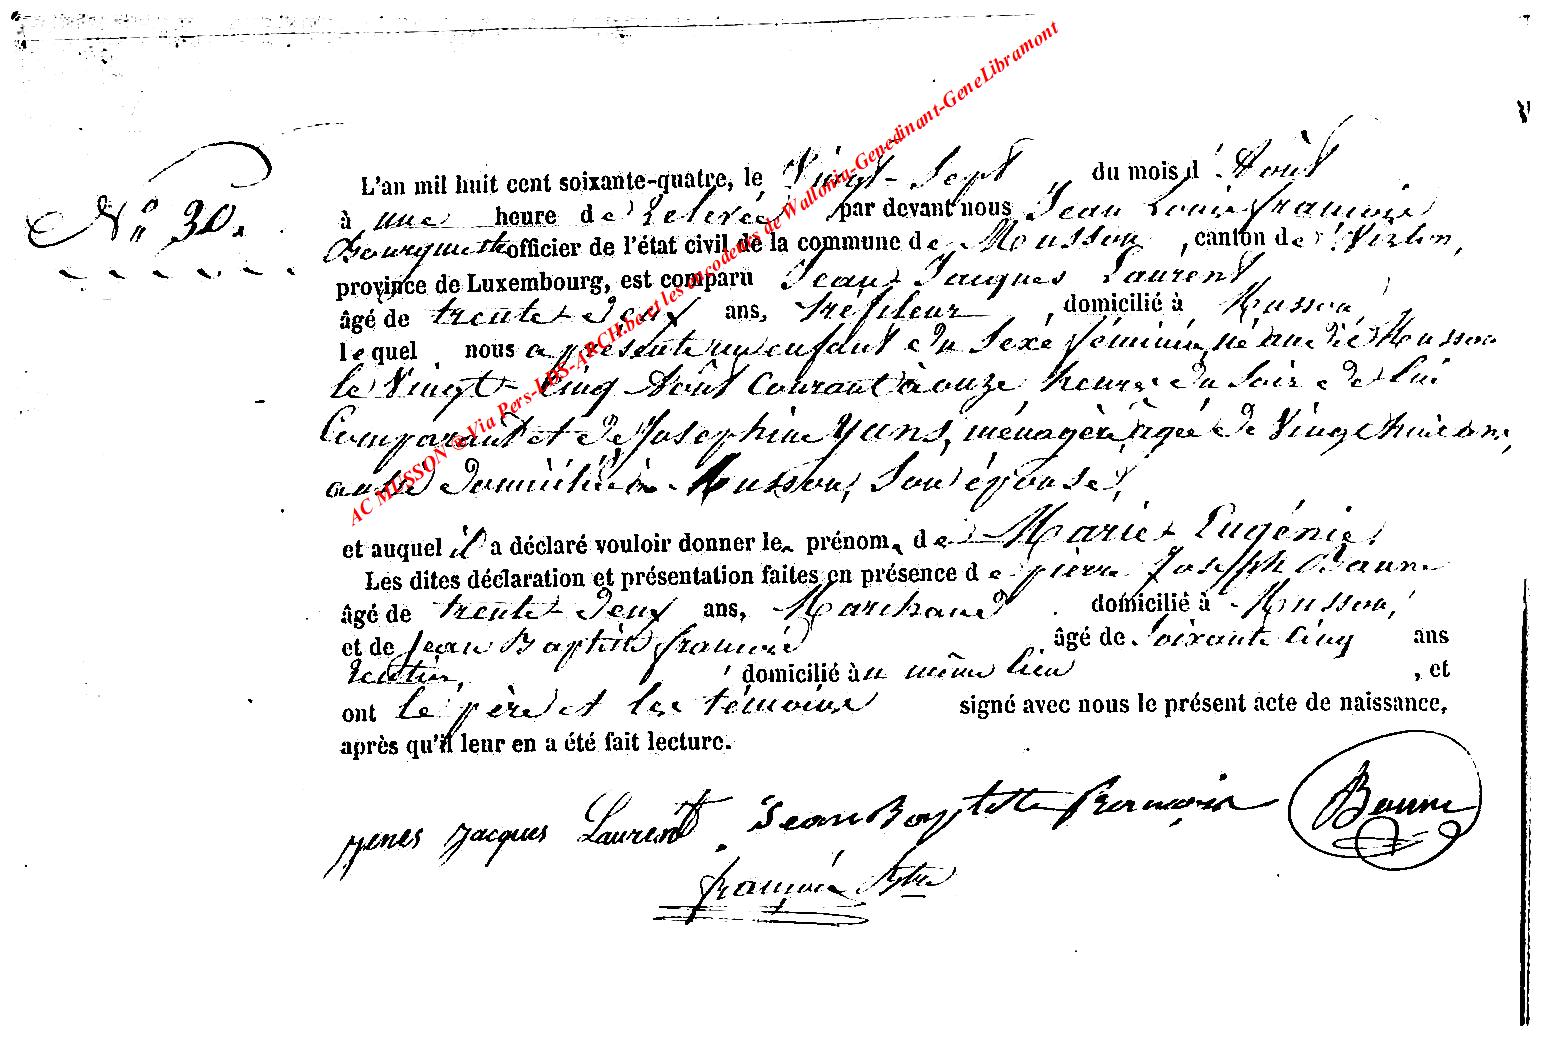 L'an mil huit cent soixante-quatre, le Vingt-Sept du mois d'Août
N° 30.
à une heure de Relevée par devant nous Jean Louis françois
officier de l'état civil de la commune de Musson, canton de Virton,
province de Luxembourg, est comparu Jean Jacques Laurent
âgé de trente deux ans, tréfileur, domicilié à Musson,
lequel nous a présenté un enfant du Sexe féminin, né audit Musson
le Vingt-Cinq Août Courant à onze heures du soir de lui
Comparant et de Josephine Yans, ménagère, âgée de Vingt huit ans,
aussi domiciliée à Musson, Son épouse,
et auquel il a déclaré vouloir donner le prénom de Marie Eugénie.
Les dites déclaration et présentation faites en présence de pierre Joseph Baune
âgé de trente deux ans, Marchand domicilié à Musson,
et de Jean Baptiste françois âgé de Soixante Cinq ans
Rentier, domicilié au même lieu, et
ont le père et les témoins signé avec nous le présent acte de naissance,
après qu'il leur en a été fait lecture.
Jacques Laurent Jean Baptiste francois Baune
françois
AC MUSSON @ Via Pers-LDS-ARCH.be et les encodeurs de Wallonia-Genedinant-GeneLibramont